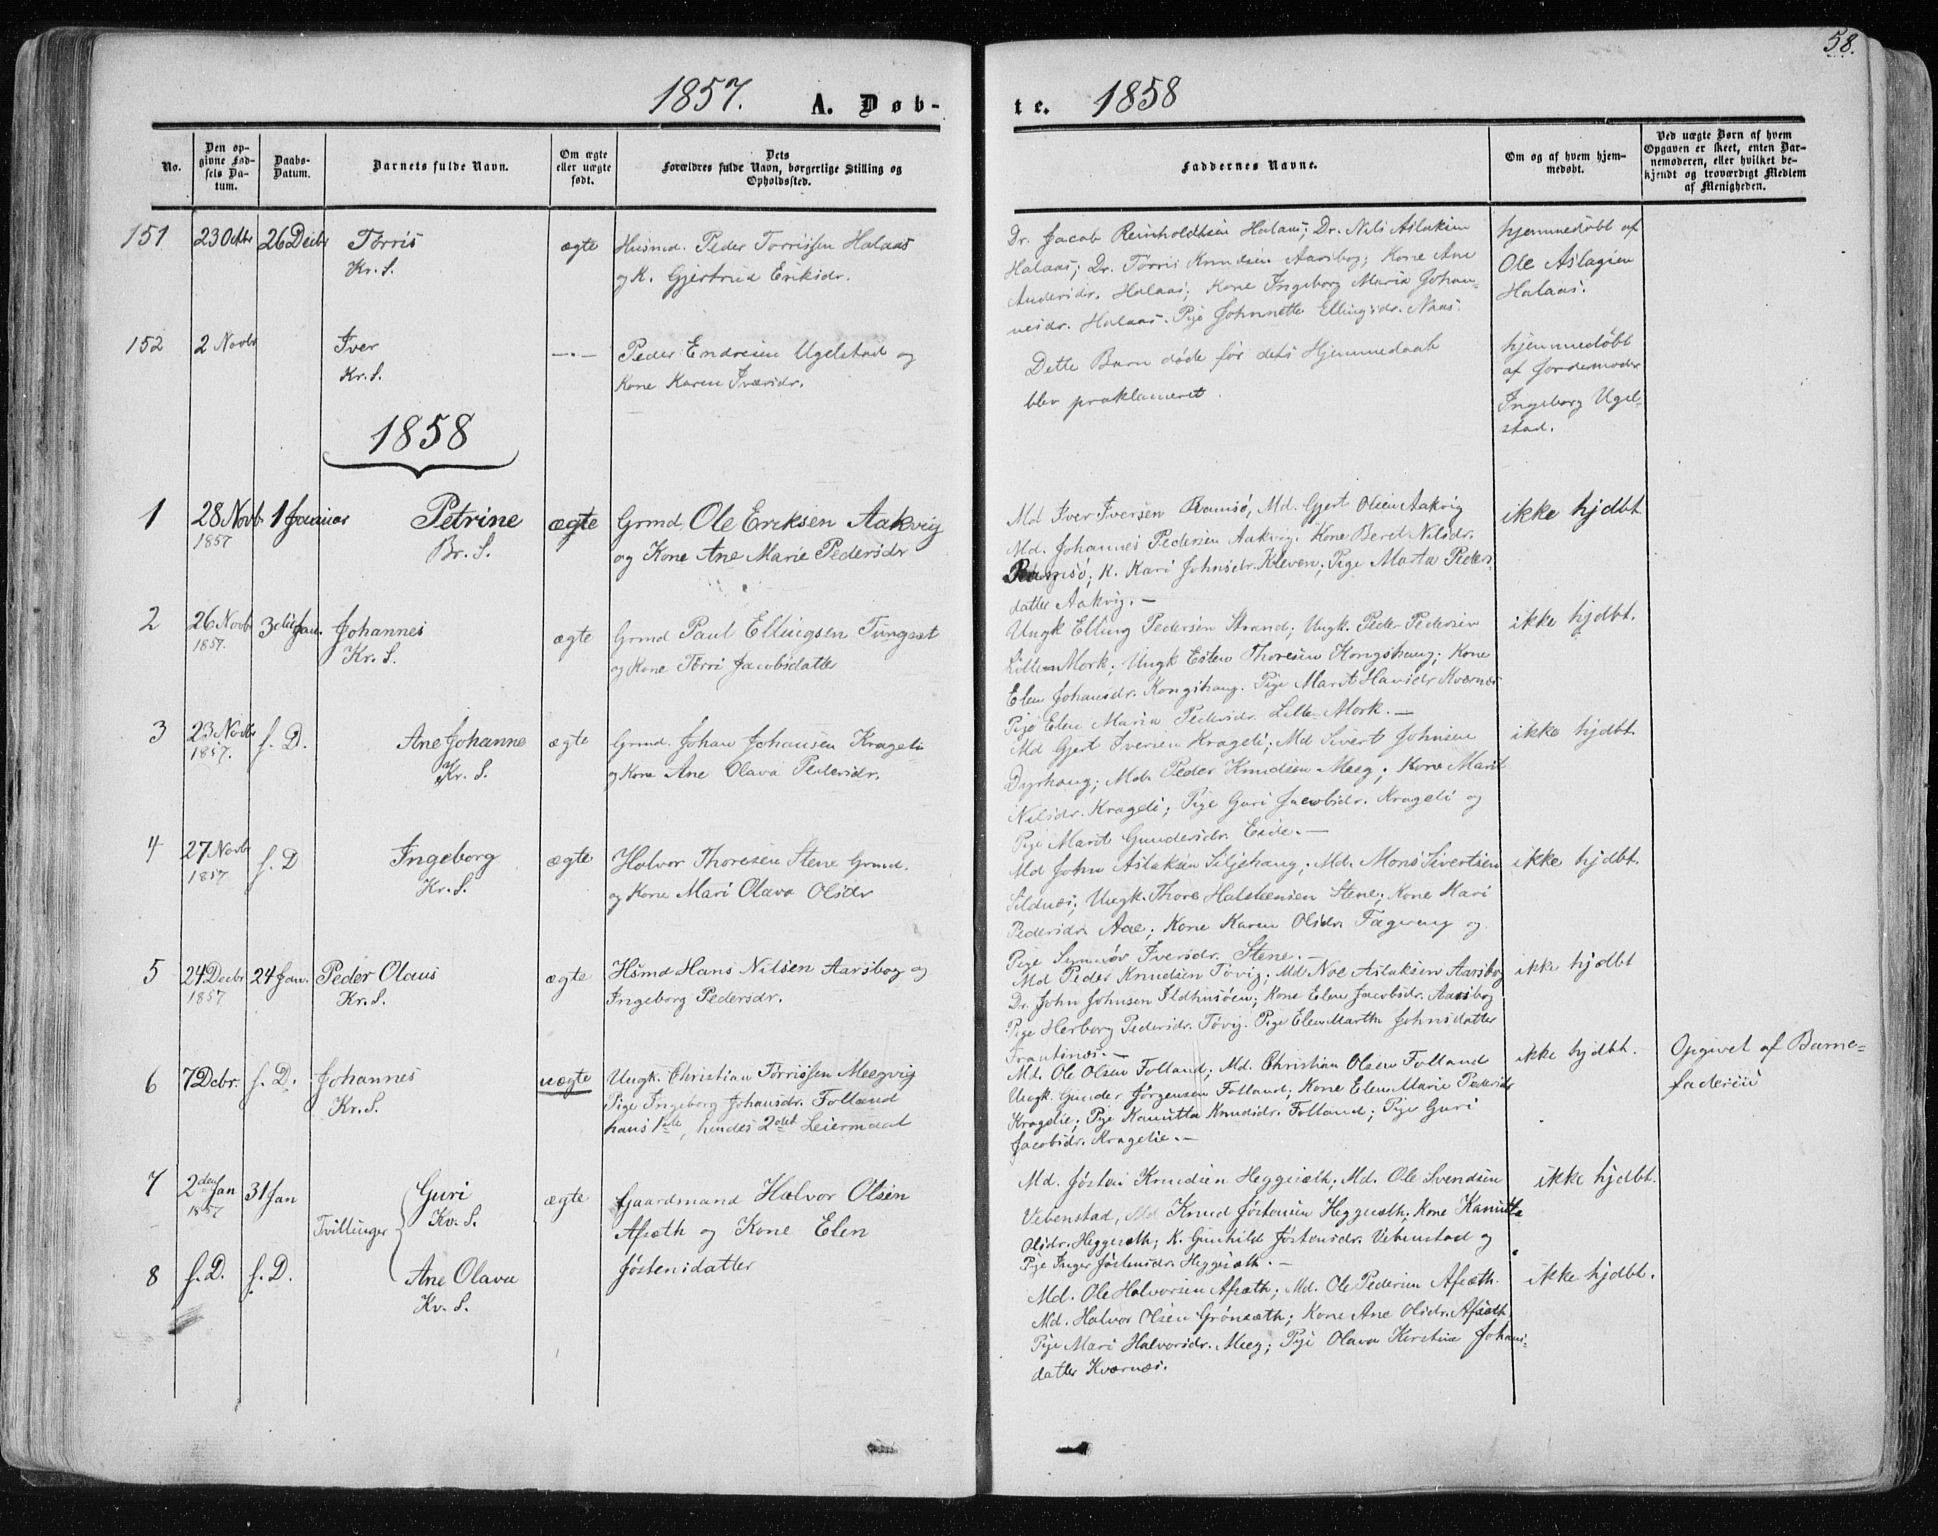 58.
1857. A. Døb-
te. 1858
No.
Den op-
givne Fød-
sels Da-
tum.
Daabs-
Datum.
Barnets fulde Navn.
Om ægte
eller uægte
født.
Dets
Forældres fulde Navn, borgerlige Stilling og
Opholdssted.
Faddernes Navne.
Om og af hvem hjem-
medøbt.
Ved uægte Børn af hvem
Opgaven er skeet, enten Bar-
nemoderen, eller hvilket be-
kjendt og troværdigt Medlem
af Menigheden.
151 23 Octbr 26 Decbr Tørris ægte Husmd. Peder Tørrissen Halaas
Kr. S. og K. Gjertrud Eriksdr.
Dr. Jacob Reinholdtsen Halaas; Dr. Nils Aslaksen
Halaas; Dr. Tørris Knudsen Aarsbog; Kone Ane
Andersdr. Halaas; Kone Ingeborg Maria Johan-
nesdr. Halaas. Pige Johnnette Ellingsdr. Naas.
hjemmedøbt af
Ole Aslagsen
Halaas.
152 2 Novbr Iver —.— Peder Endresen Ugelstad og
Kr. S. Kone Karen Iversdr.
Dette Barn døde før dets Hjemmedaab
blev proklameret.
hjemmedøbt
af Jordemoder
Ingeborg Ugel-
stad.
1858
1 28 Novb 1 Januar Petrine ægte Grmd. Ole Eriksen Aakvig
1857 Br. S. og Kone Ane Marie Pedersdr
Md Iver Iversen Ramsø, Md. Gjert Olsen Aakvig
Md. Johannes Pedersen Aakvig. Kone Beret Nilsdr.
Ramsø; K. Kari Johnsdr. Kleven; Pige Marta Peders-
datter Aakvig. —
ikke hjdbt
2 26 Novb 3die Jan. Johannes ægte Grmd Paul Ellingsen Tungsæt
1857. Kr. S. og Kone Tørri Jacobsdatter
Ungk Elling Pedersen Strand; Ungk. Peder Pedersen
Lille-Mork; Ungk Esten Thoresen Kongshaug; Kone
Elen Johansdr. Kongshaug. Pige Marit Hansdr Kvernes
Pige Elen Maria Pedersdr. Lille-Mork. —
ikke hjdbt.
3 23 Novbr s. D. Ane Johanne ægte Grmd. Johan Johansen Krageli
1857. Kr. S. og Kone Ane Olava Pedersdr.
Md Gjert Iversen Krageli; Md Sivert Johnsen
Dyrhaug; Md. Peder Knudsen Meeg; Kone Marit
Nilsdr. Krageli; Pige Guri Jacobsdr. Krageli og
Pige Marit Gundersdr. Eide. —
ikke hjdbt.
4 27 Novb s. D Ingeborg ægte Halvor Thoresen Stene Grmd.
1857 Kr. S. og Kone Mari Olava Olsdr
Md John Aslaksen Siljehaug; Md. Mons Sivertsen
Sildnæs; Ungk. Thore Halsteensen Stene; Kone Mari
Pedersdr. Aae; Kone Karen Olsdr. Fagerveng og
Pige Synnøv Iversdr. Stene. —
ikke hjdbt.
5 24 Decbr 24 Jan. Peder Olaus ægte Hsmd Hans Nilsen Aarsbog og
1857. Kr. S. Ingeborg Pedersdr.
Md Peder Knudsen Tøvig; Md Noe Aslaksen Aarsbog
Dr. John Johnsen Ildhusøen; Kone Elen Jacobsdr. Aarsbog
Pige Herborg Pedersdr. Tøvig. Pige Elen Martha Johnsdatter
Frantsnæs. —
ikke hjdbt
6 7 Dcbr. s. D. Johannes uægte Ungk. Christian Tørrissen Meegvig
Kr. S. Pige Ingeborg Johansdr. Folland
hans 1ste, hendes 2det Leiermaal
Md. Ole Olsen Folland; Md. Christian Olsen Folland
Ungk. Gunder Jørgensen Folland; Kone Elen Marie Pedersdr
Kragelie; Pige Kanutta Knudsdr. Folland; Pige Guri
Jacobsdr. Kragelie. —
ikke hjdbt.
Opgivet af Barne-
faderen
7 2den Jan 31 Jan Guri ægte Gaardmand Halvor Olsen
1857 Tvillinger Kv. S. Afsæth og Kone Elen
Jøstensdatter
Md. Jøsten Knudsen Heggesæth, Md. Ole Svendsen
Vebenstad, Md Knud Jøstensen Heggesæth; Kone Kanutta
Olsdr. Heggesæth; K. Gunhild Jøstensdr. Vebenstad og
Pige Inger Jøstensdr. Heggesæth. —
ikke hjdbt.
8 s. D. s. D. Ane Olava
Kv. S.
Md. Ole Halvorsen Afsæth; Md. Ole Pedersen Afsæth.
Md. Halvor Olsen Grønsæth; Kone Ane Olsdr. Afsæth
Pige Mari Halvorsdr. Meeg; Pige Olava Kirstine Johans-
datter Kvarnæs.
ikke hjdbt.